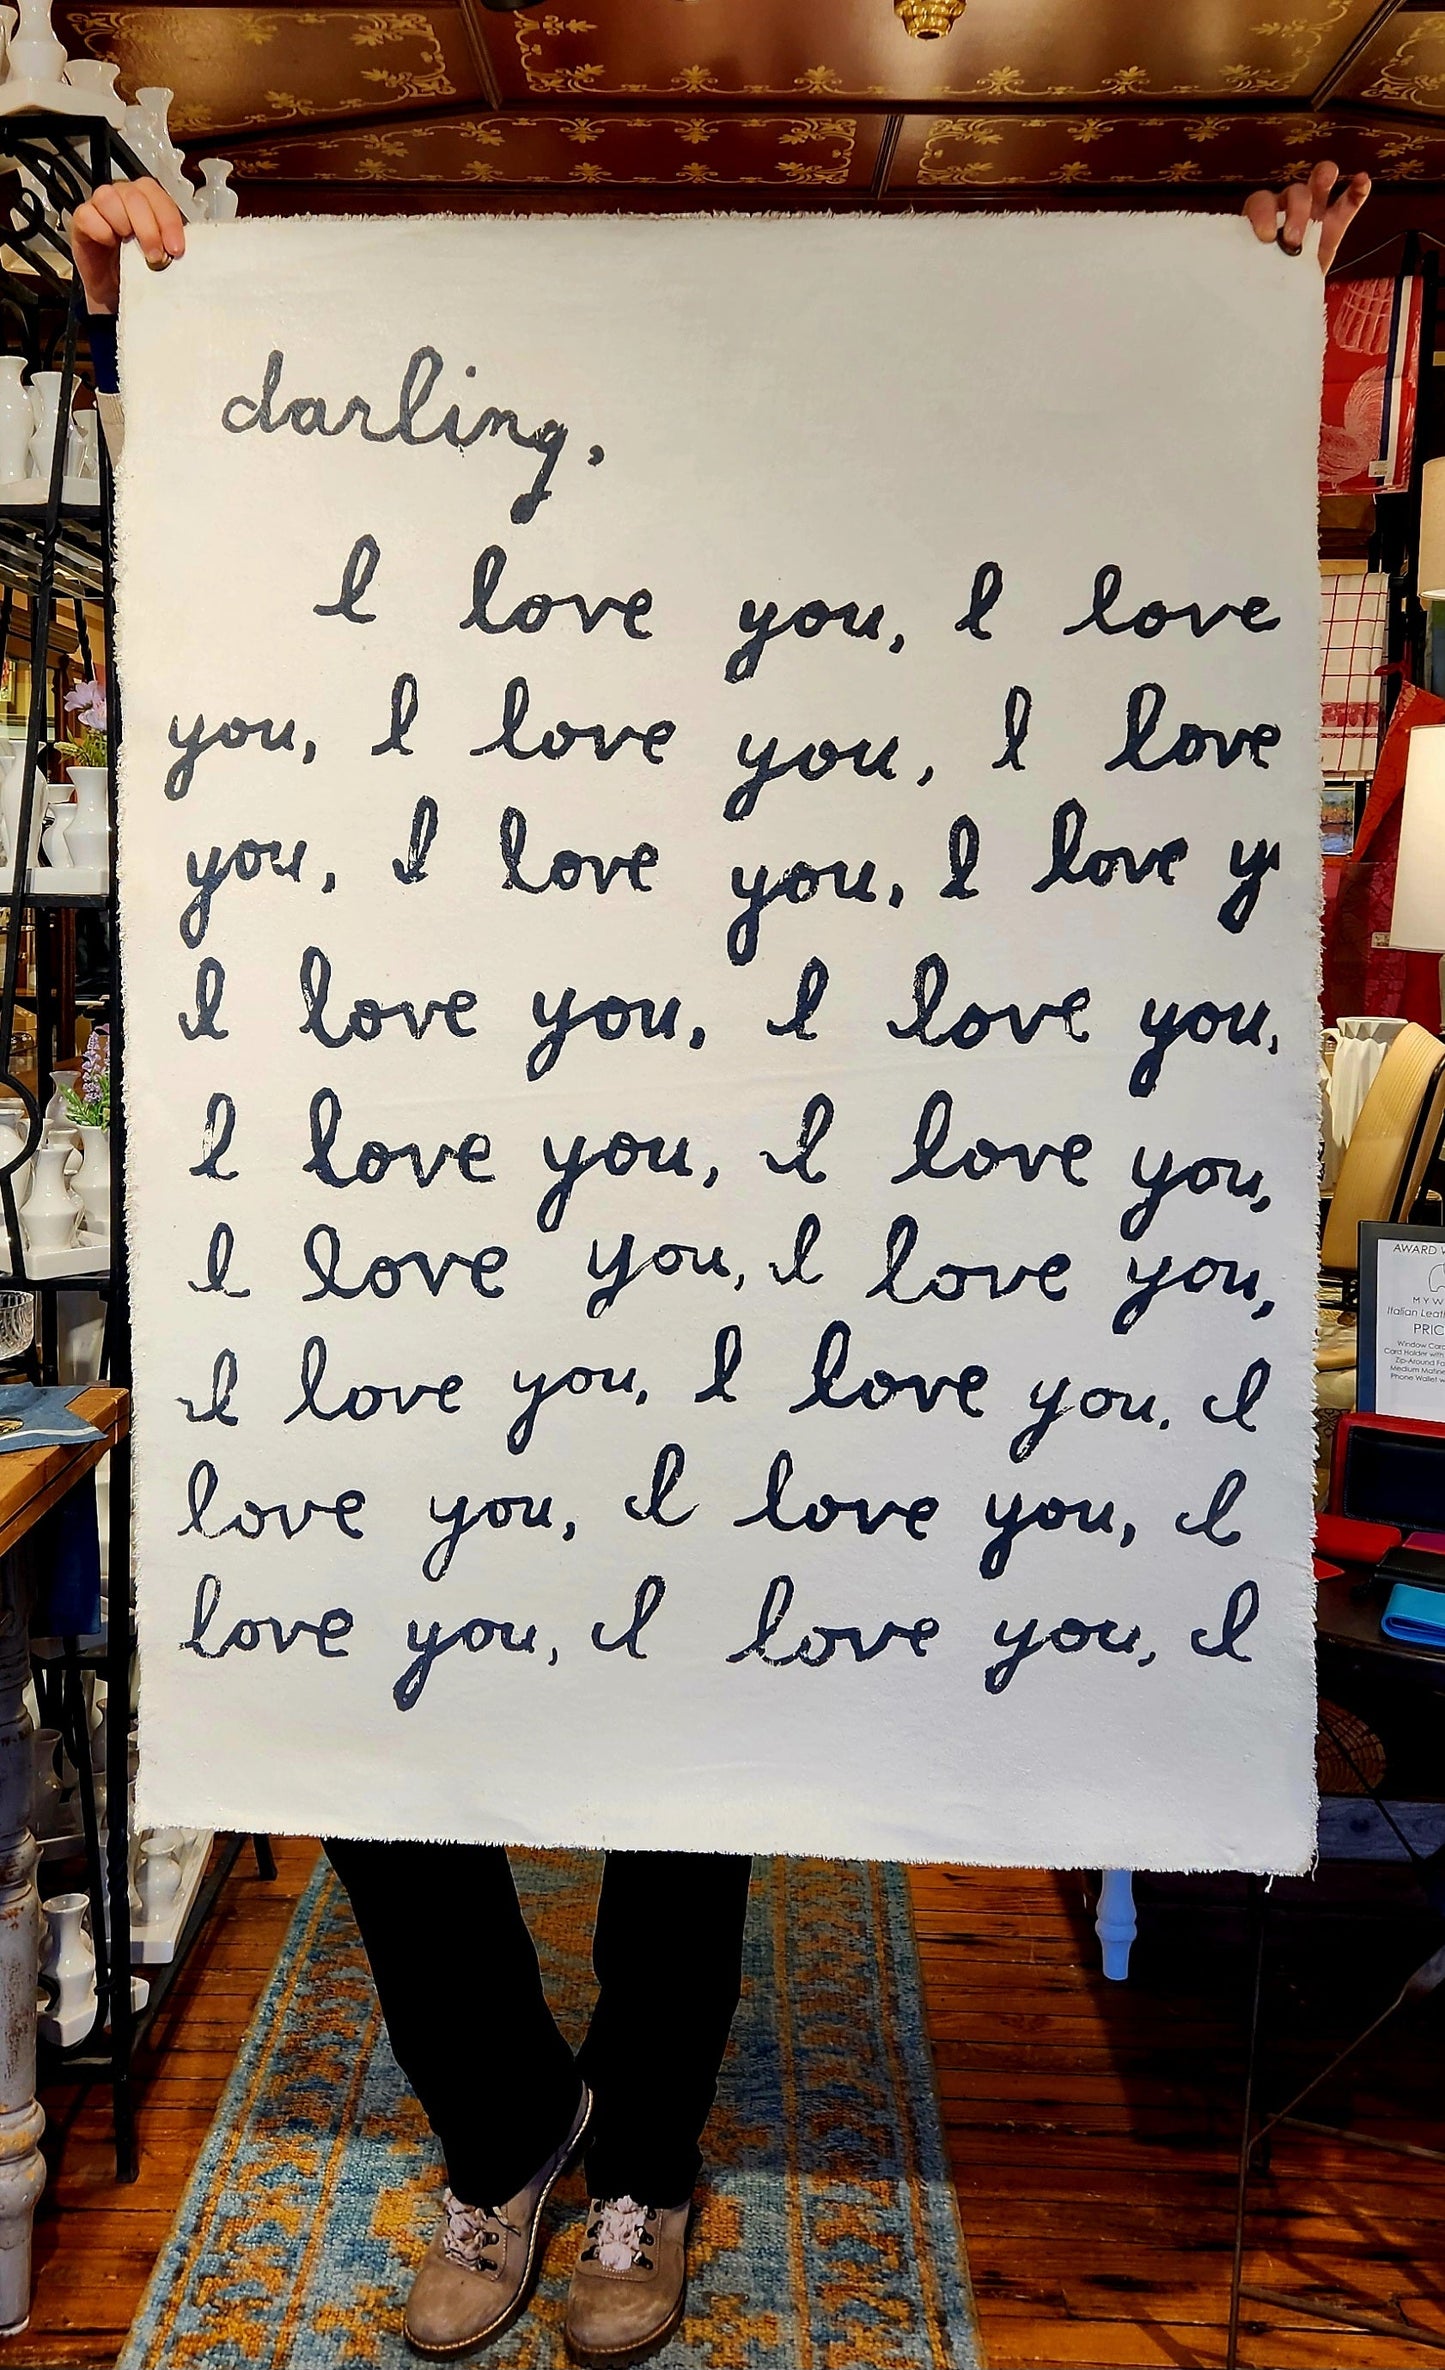 darling,
I love you, I love
you, I love you, I love
you, I love you, I love y
I love you, I love you,
I love you, I love you,
I love you, I love you,
I love you, I love you, I
love you, I love you, I
love you, I love you, I
AWARD
MYW
Italian Leat
PRIC
Window Car
Card Holder with
Zip-Around Fo
Medium Matine
Phone Wallet w